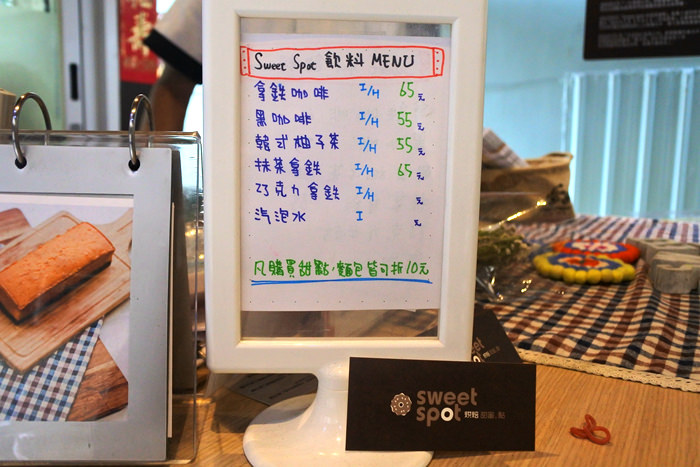 Sweet Spot 飲料 MENU
拿鐵咖啡 I/H 65元
黑咖啡 I/H 55元
韓式柚子茶 I/H 55元
抹茶拿鐵 I/H 65元
巧克力拿鐵 I/H 元
汽泡水 I 元
凡購買甜點，麵包皆可折10元
sweet
spot 烘焙